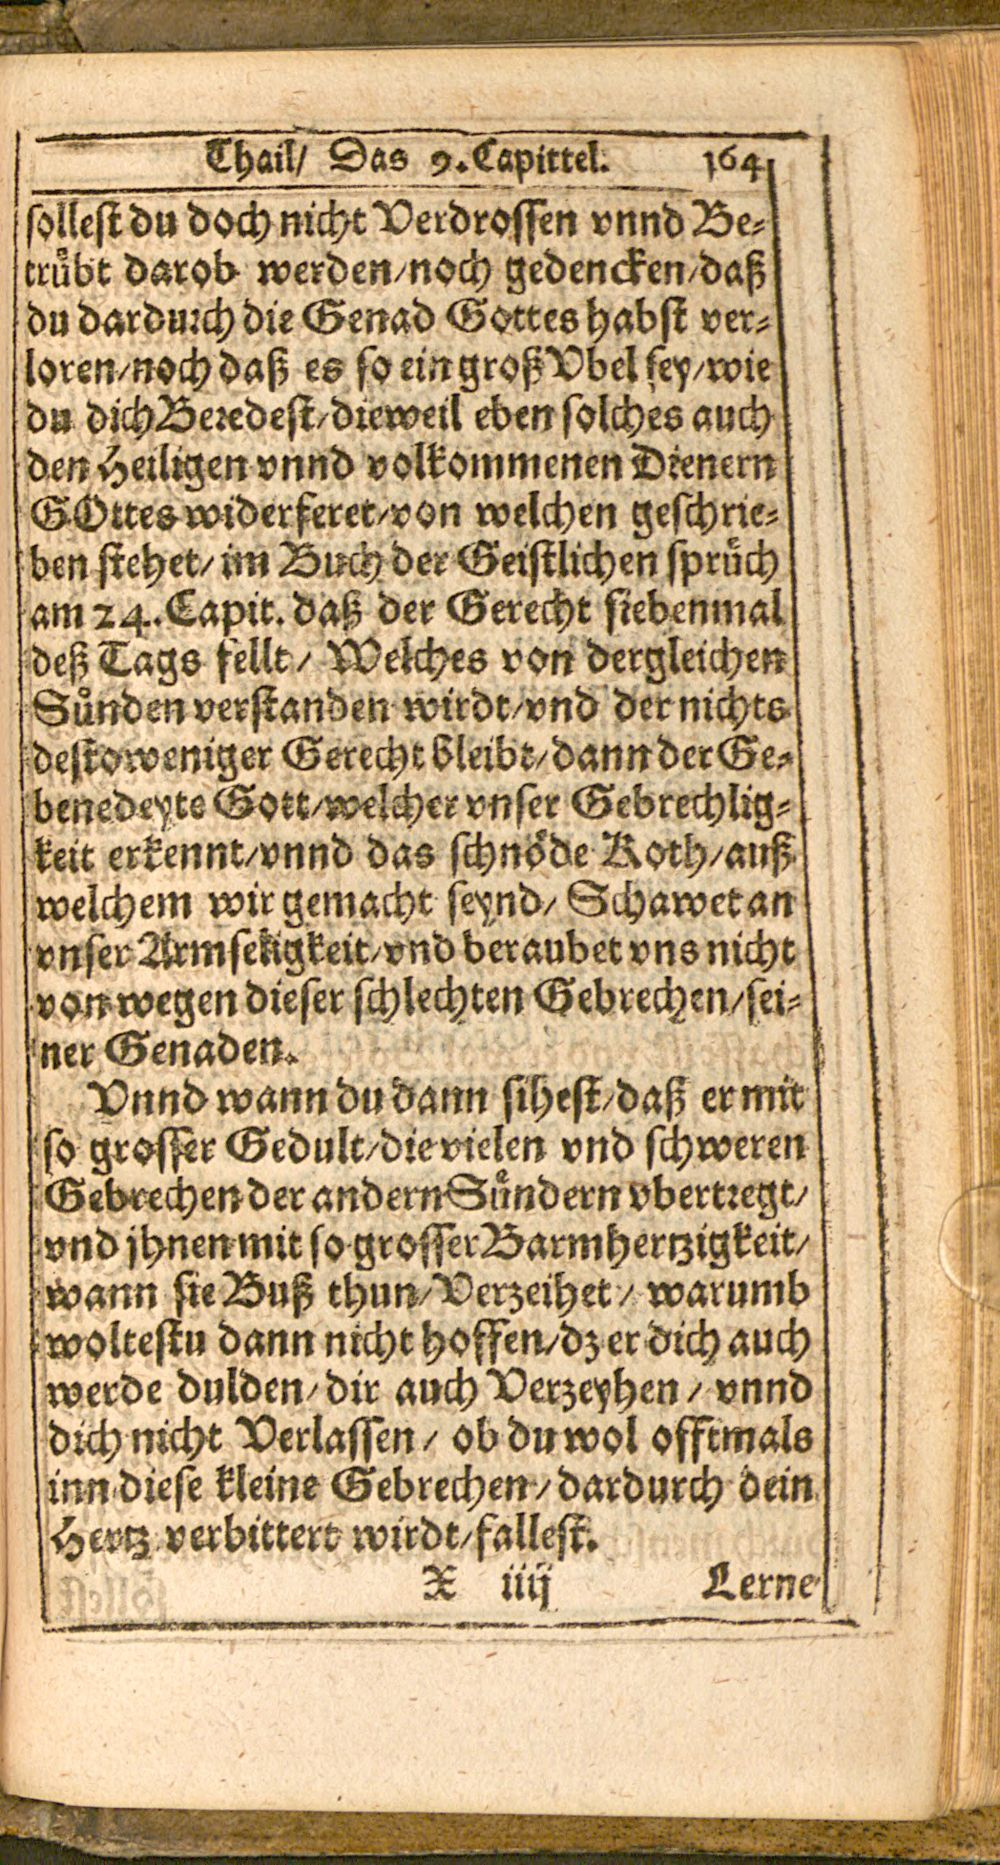 Thail/ Das 9. Capittel. 164
sollest du doch nicht Verdrossen vnnd Be⸗
truͤbt darob werden/noch gedencken/daß
du dardurch die Genad Gottes habst ver⸗
loren/noch daß es so ein groß Vbel sey/wie
du dich Beredest/dieweil eben solches auch
den Heiligen vnnd volkommenen Dienern
GOttes widerferet/von welchen geschrie⸗
ben stehet/im Buch der Geistlichen spruͤch
am 24. Capit. daß der Gerecht siebenmal
deß Tags fellt/ Welches von dergleichen
Suͤnden verstanden wirdt/vnd der nichts
destoweniger Gerecht bleibt/dann der Ge⸗
benedeyte Gott/welcher vnser Gebrechlig⸗
keit erkennt/vnnd das schnoͤde Koth/auß
welchem wir gemacht seynd/ Schawet an
vnser Armseligkeit/vnd beraubet vns nicht
von wegen dieser schlechten Gebrechen/sei⸗
ner Genaden.
Vnnd wann du dann sihest/daß er mit
so grosser Gedult/die vielen vnd schweren
Gebrechen der andern Suͤndern vbertregt/
vnd jhnen mit so grosser Barmhertzigkeit/
wann sie Buß thun/Verzeihet/ warumb
woltestu dann nicht hoffen/dz er dich auch
werde dulden/dir auch Verzeyhen/ vnnd
dich nicht Verlassen/ ob du wol offtmals
inn diese kleine Gebrechen/dardurch dein
Hertz verbittert wirdt/fallest.
X iiij Lerne